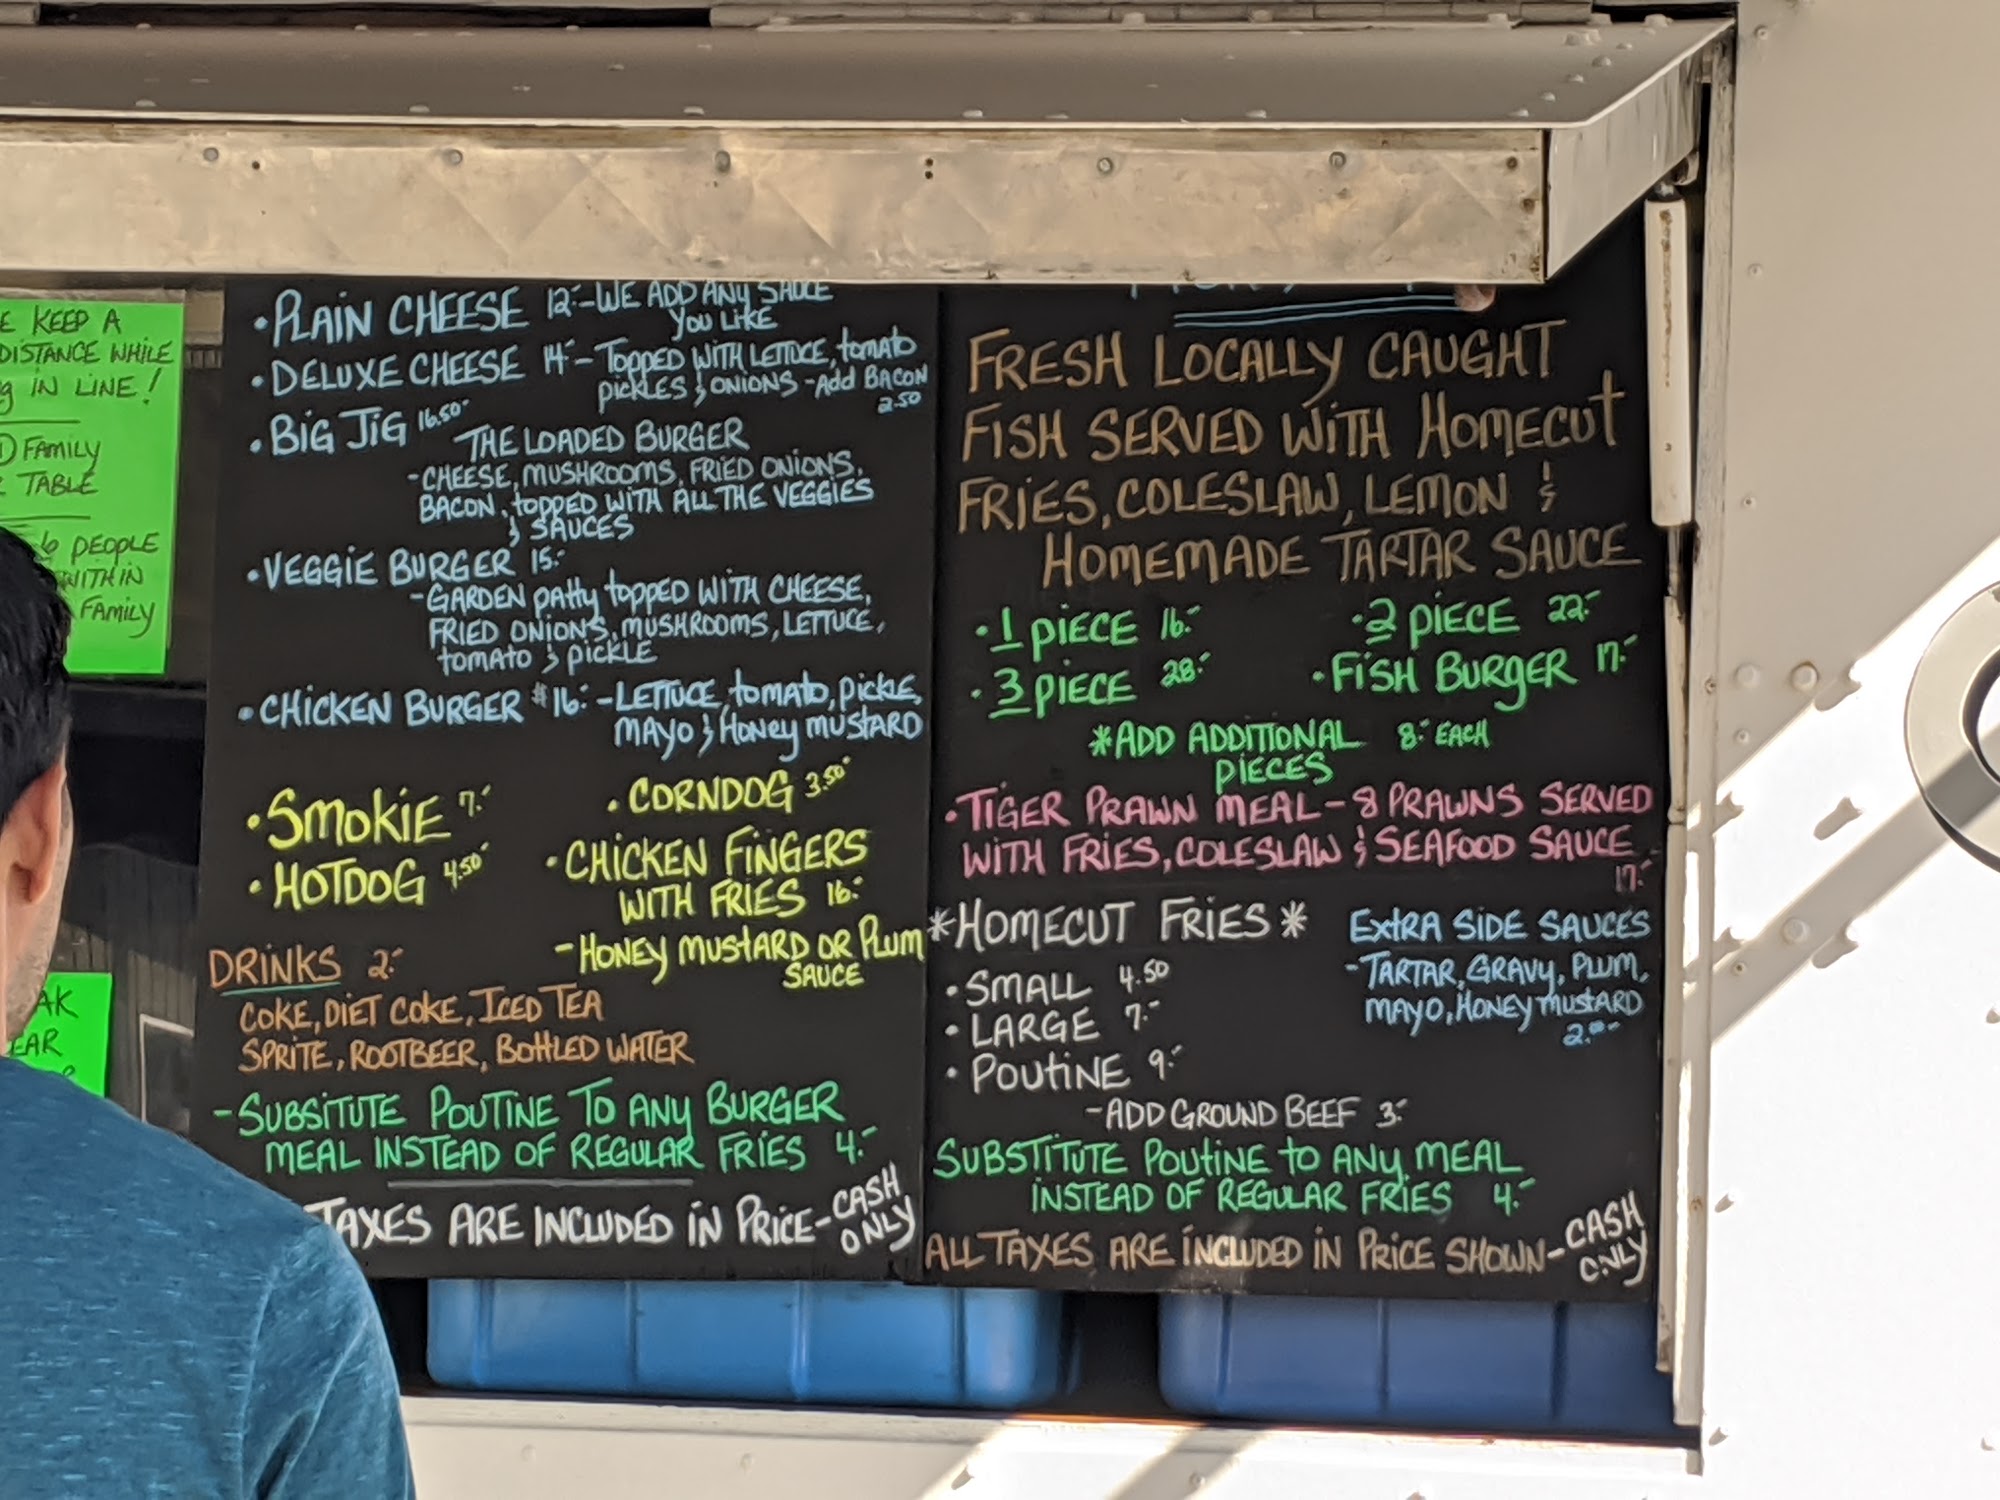 E KEEP A
DISTANCE WHILE
g IN LINE!
① FAMILY
TABLE
6 PEOPLE
WITHIN
FAMILY
AK
EAR
• PLAIN CHEESE 12.- - WE ADD ANY SAUCE
YOU LIKE
• DELUXE CHEESE 14.- - TOPPED WITH LETTUCE, tomato
pickles & ONIONS - Add BACON
2.50
• BIG JIG 16.50
THE LOADED BURGER
- CHEESE, MUSHROOMS, FRIED ONIONS,
BACON, topped WITH ALL THE VEGGIES
& SAUCES
• VEGGIE BURGER 15.-
- GARDEN patty topped WITH CHEESE,
FRIED ONIONS, MUSHROOMS, LETTUCE,
tomato & pickle
• CHICKEN BURGER $16.- - LETTUCE, tomato, pickle,
MAYO & Honey MUSTARD
• SMOKIE 7.-
• CORNDOG 3.50
• HOTDOG 4.50
• CHICKEN FINGERS
WITH FRIES 16.-
- HONEY MUSTARD OR PLUM
SAUCE
DRINKS 2.-
COKE, DIET COKE, ICED TEA
SPRITE, ROOTBEER, BOttLED WATER
- SUBSITUTE POUTINE TO ANY BURGER
MEAL INSTEAD OF REGULAR FRIES 4.-
TAXES ARE INCLUDED IN PRICE - CASH
ONLY
FRESH LOCALLY CAUGHT
FISH SERVED WITH HOMECUT
FRIES, COLESLAW, LEMON &
HOMEMADE TARTAR SAUCE
• 1 PIECE 16.-
• 2 PIECE 22.-
• 3 PIECE 28.-
• FISH BURGER 17.-
*ADD ADDITIONAL 8.- EACH
PIECES
• TIGER PRAWN MEAL - 8 PRAWNS SERVED
WITH FRIES, COLESLAW & SEAFOOD SAUCE
17.-
*HOMECUT FRIES*
• SMALL 4.50
• LARGE 7.-
• POUTINE 9.-
- ADD GROUND BEEF 3.-
EXTRA SIDE SAUCES
- TARTAR, GRAVY, PLUM,
MAYO, HONEY MUSTARD
2.00-
SUBSTITUTE POUTINE TO ANY MEAL
INSTEAD OF REGULAR FRIES 4.-
ALL TAXES ARE INCLUDED IN PRICE SHOWN - CASH
ONLY